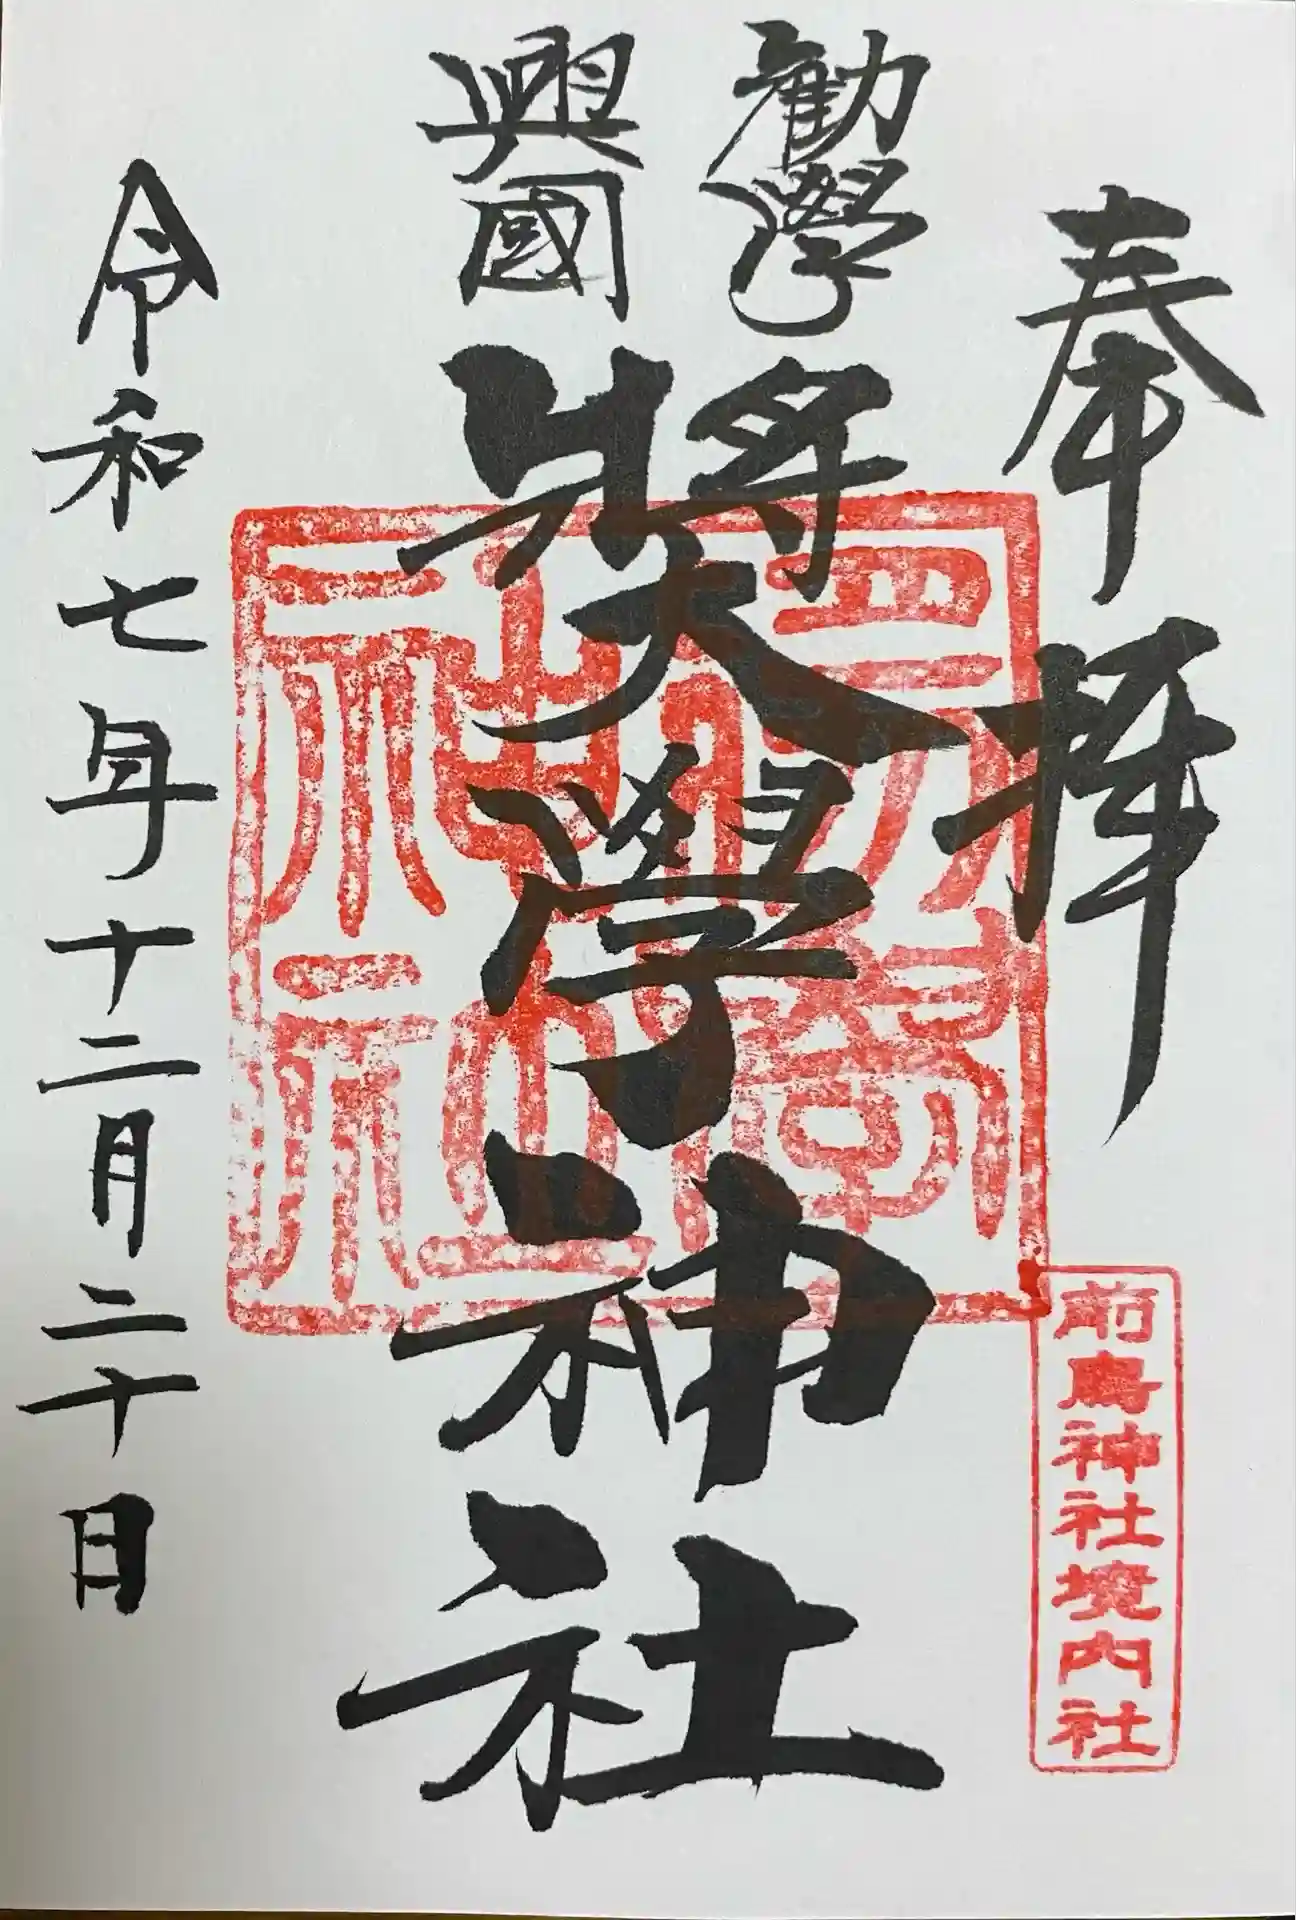 奉拝
勸學
興國
奬學神社
令和七年十二月二十日
前鳥神社境内社